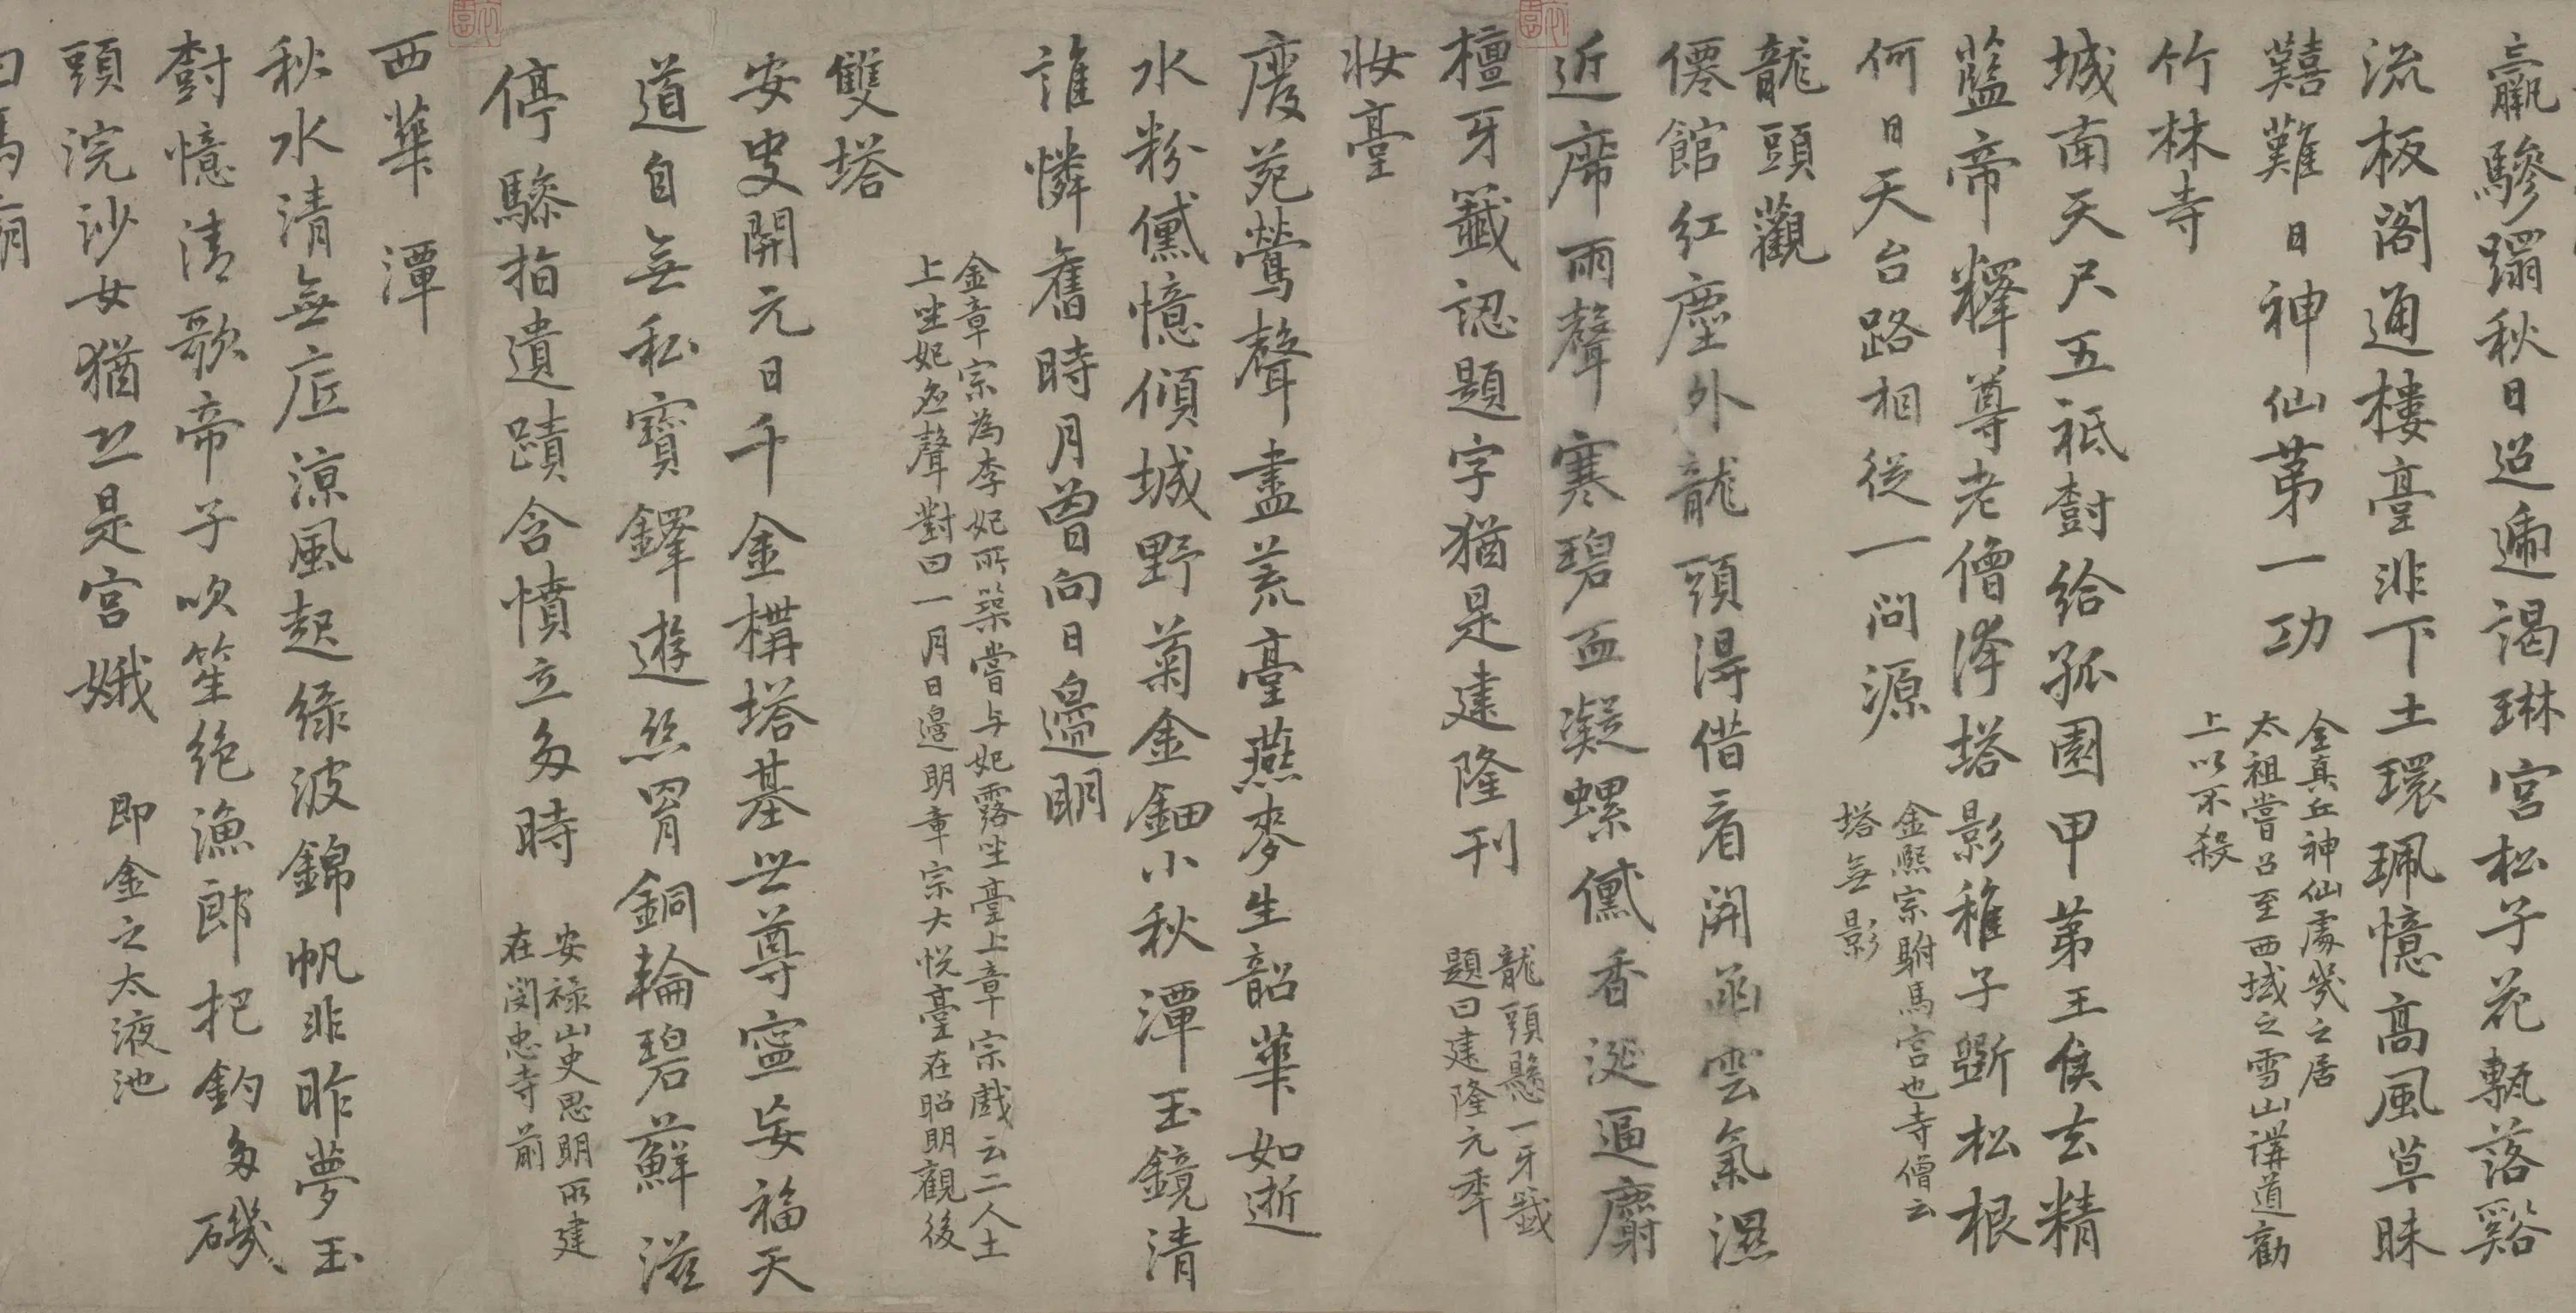 羸驂躡秋日迢遞謁琳宮松子花甎落谿
流板閣通樓臺非下土環珮憶高風草昧
囏難日神仙第一功
全真丘神仙處幾之居
太祖嘗召至西域之雪山講道勸
上以不殺
竹林寺
城南天尺五祇樹給孤園甲第王侯去精
藍帝釋尊老僧浮塔影稚子斲松根
何日天台路相從一問源
金熙宗駙馬宮也寺僧云
塔無影
龍頭觀
僊館紅塵外龍頭得借看開函雲氣濕
近席雨聲寒碧血凝螺儻香涎逼麝
檀牙籤認題字猶是建隆刊
龍頭懸一牙籤
題曰建隆元年
妝臺
廢苑鶯聲盡荒臺燕麥生韶華如逝
水粉儻憶傾城野菊金鈿小秋潭玉鏡清
誰憐舊時月曾向日邊明
金章宗為李妃所築嘗与妃露坐臺上章宗戲云二人土
上坐妃應聲對曰一月日邊明章宗大悅臺在昭明觀後
雙塔
安史開元日千金構塔基世尊寧妄福天
道自無私寶鐸遊絲罥銅輪碧蘚滋
停驂指遺蹟含憤立多時
安祿山史思明所建
在閔忠寺前
西華潭
秋水清無底涼風起綠波錦帆非昨夢玉
樹憶清歌帝子吹笙絕漁郎把釣多磯
頭浣沙女猶恐是宮娥
即金之太液池
白馬廟